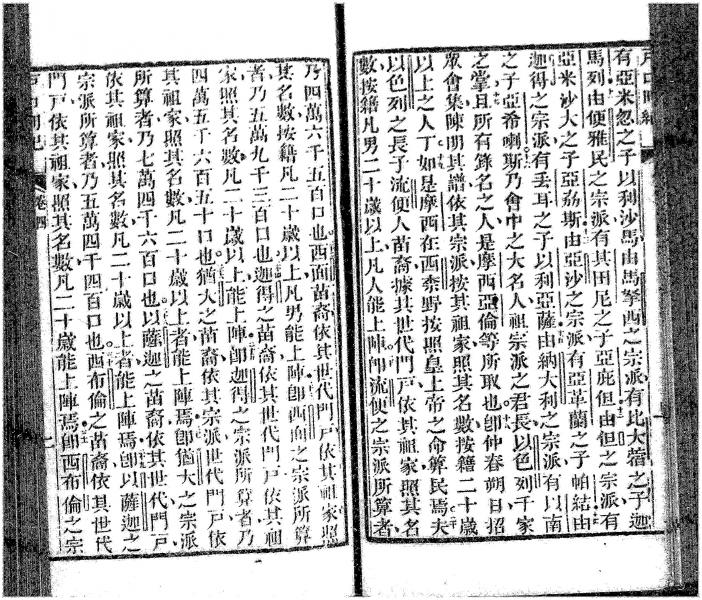 有亞米忽之子以利沙馬由馬拿西之宗派有比大蓿之子迦
馬列由便雅民之宗派有其田尼之子亞庇但由但之宗派有
亞米沙大之子亞勍斯由亞沙之宗派有亞革蘭之子帕結由
迦得之宗派有丟耳之子以利亞薩由納大利之宗派有以南
之子亞希喇斯乃會中之大名人祖宗派之君長以色列千家
之掌且所有錄名之人是摩西亞倫等所取也卽仲春朔日招
眾會集陳明其譜依其宗派按其祖家照其名數按籍二十歲
以上之人丁如是摩西在西柰野按照皇上帝之命算民焉夫
以色列之長子流便人苗裔據其世代門戶依其祖家照其名
數按籍凡男二十歲以上凡人能上陣卽流便之宗派所算者
乃四萬六千五百口也西面苗裔依其世代門戶依其祖家照
其名數按籍凡二十歲以上凡男能上陣卽西面之宗派所算
者乃五萬九千三百口也迦得之苗裔依其世代門戶依其祖
家照其名數凡二十歲以上能上陣卽迦得之宗派所算者乃
四萬五千六百五十口也猶大之苗裔依其宗派世代門戶依
其祖家照其名數凡二十歲以上者能上陣焉卽猶大之宗派
所算者乃七萬四千六百口也以薩迦之苗裔依其世代門戶
依其祖家照其名數凡二十歲以上者能上陣焉卽以薩迦之
宗派所算者乃五萬四千四百口也西布倫之苗裔依其世代
門戶依其祖家照其名數凡二十歲能上陣焉卽西布倫之宗
卷四